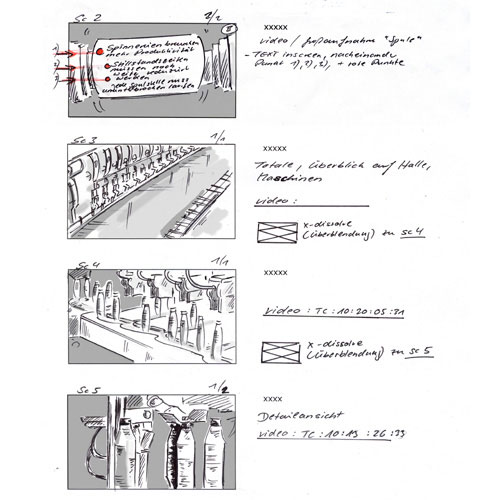 Sc 2
2/2
Spinnereien brauchen
mehr Produktivität
Stillstandzeiten
müssen noch
werden
jede Spulstelle muss
ununterbrochen laufen
1)
2)
3)
xxxxx
video / Großaufnahme "Spule"
- TEXT insceren, nacheinander,
Punkt 1), 2), 3), + rote Punkte
Sc 3
1/1
xxxxx
Totale, Überblick auf Halle,
Maschinen
video:
x-dissolve
(Überblendung) zu sc 4
Sc 4
1/1
xxxxx
video : TC : 10:20:05:31
x-dissolve
(Überblendung) zu sc 5
Sc 5
1/2
xxxx
Detailansicht
video : TC : 10:19 : 26:23